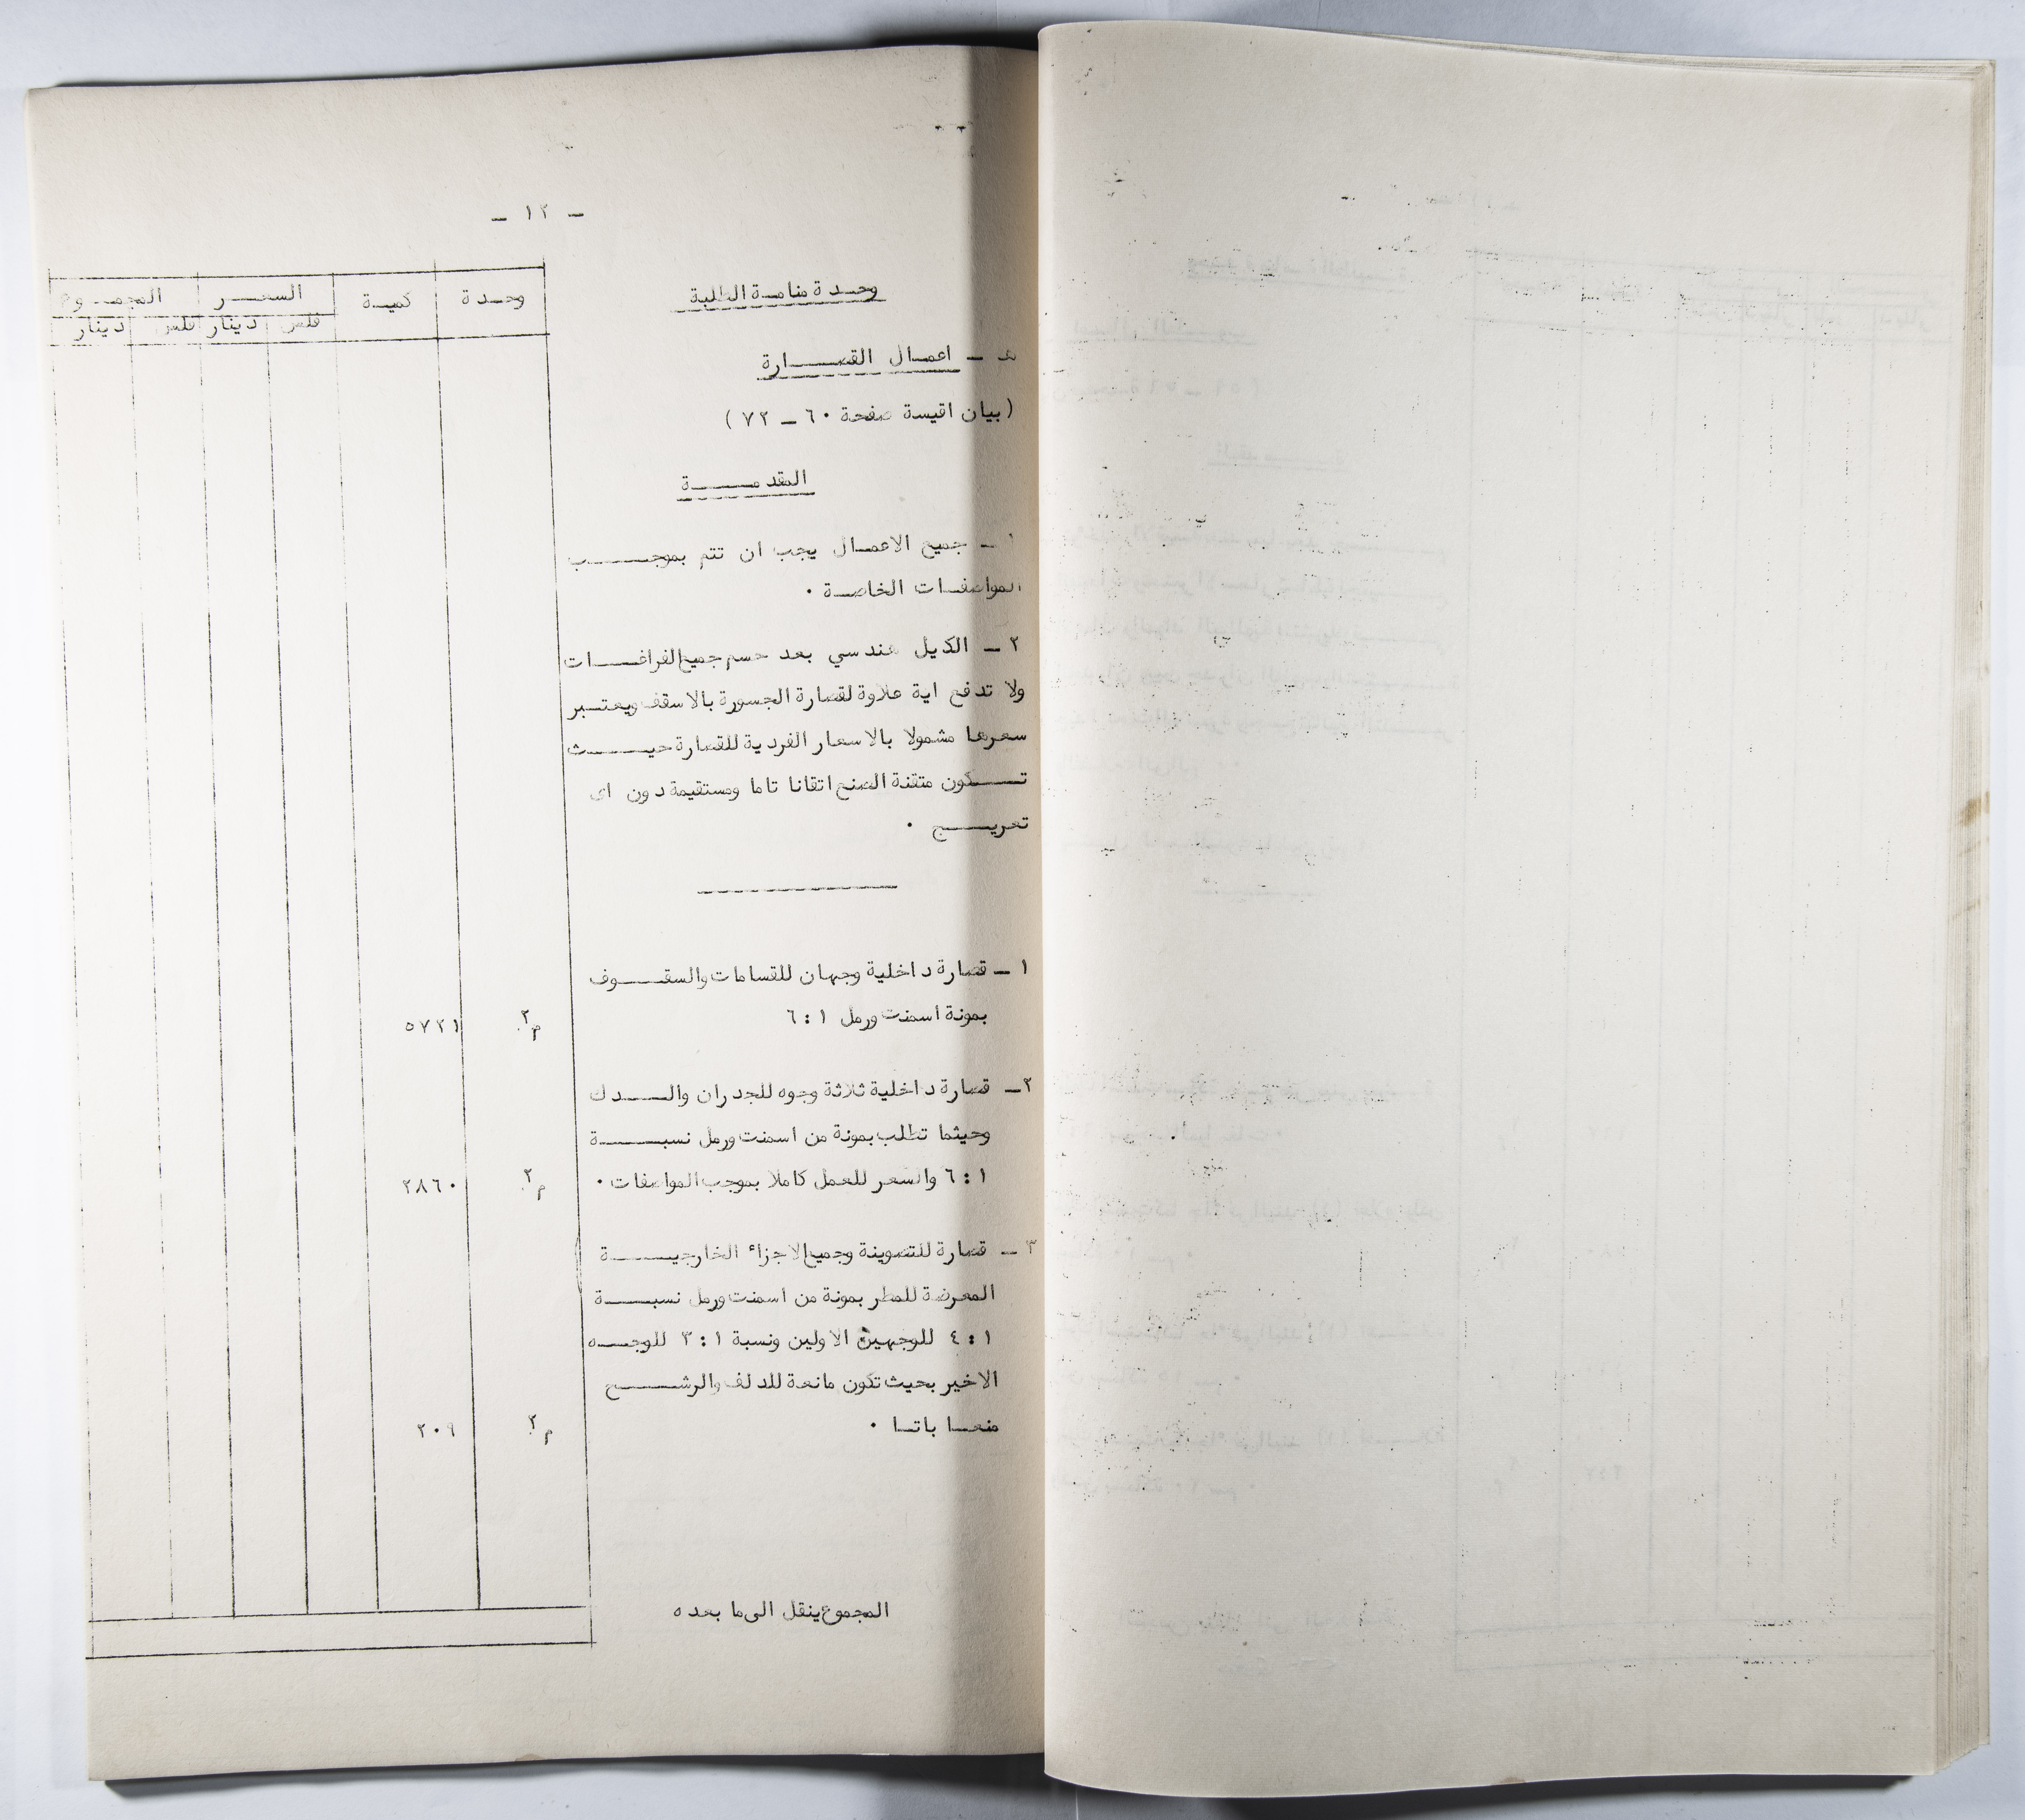 - ١٢ -
وحدة منامة الطلبة
وحدة كمية السعر المجموع
فلس دينار فلس دينار
هـ - اعمال القصارة
(بيان اقيسة صفحة ٦٠ - ٧٢)
المقدمة
١ - جميع الاعمال يجب ان تتم بموجب
المواصفات الخاصة ٠
٢ - الكيل هندسي بعد حسم جميع الفراغات
ولا تدفع اية علاوة لقصارة الجسورة بالاسقف ويعتبر
سعرها مشمولا بالاسعار الفردية للقصارة حيث
تكون متقنة الصنع اتقانا تاما ومستقيمة دون اى
تعريج ٠
١ - قصارة داخلية وجهان للقسامات والسقوف
بمونة اسمنت ورمل ١ : ٦ م٢ ٥٧٢١
٢ - قصارة داخلية ثلاثة وجوه للجدران والدك
وحيثما تطلب بمونة من اسمنت ورمل نسبة
١ : ٦ والسعر للعمل كاملا بموجب المواصفات ٠ م٢ ٢٨٦٠
٣ - قصارة للتصوينة وجميع الاجزاء الخارجية
المعرضة للمطر بمونة من اسمنت ورمل نسبة
١ : ٤ للوجهين الاولين ونسبة ١ : ٣ للوجه
الاخير بحيث تكون مانعة للدلف والرشح
منعا باتا ٠ م٢ ٢٠٩
المجموع ينقل الى ما بعده